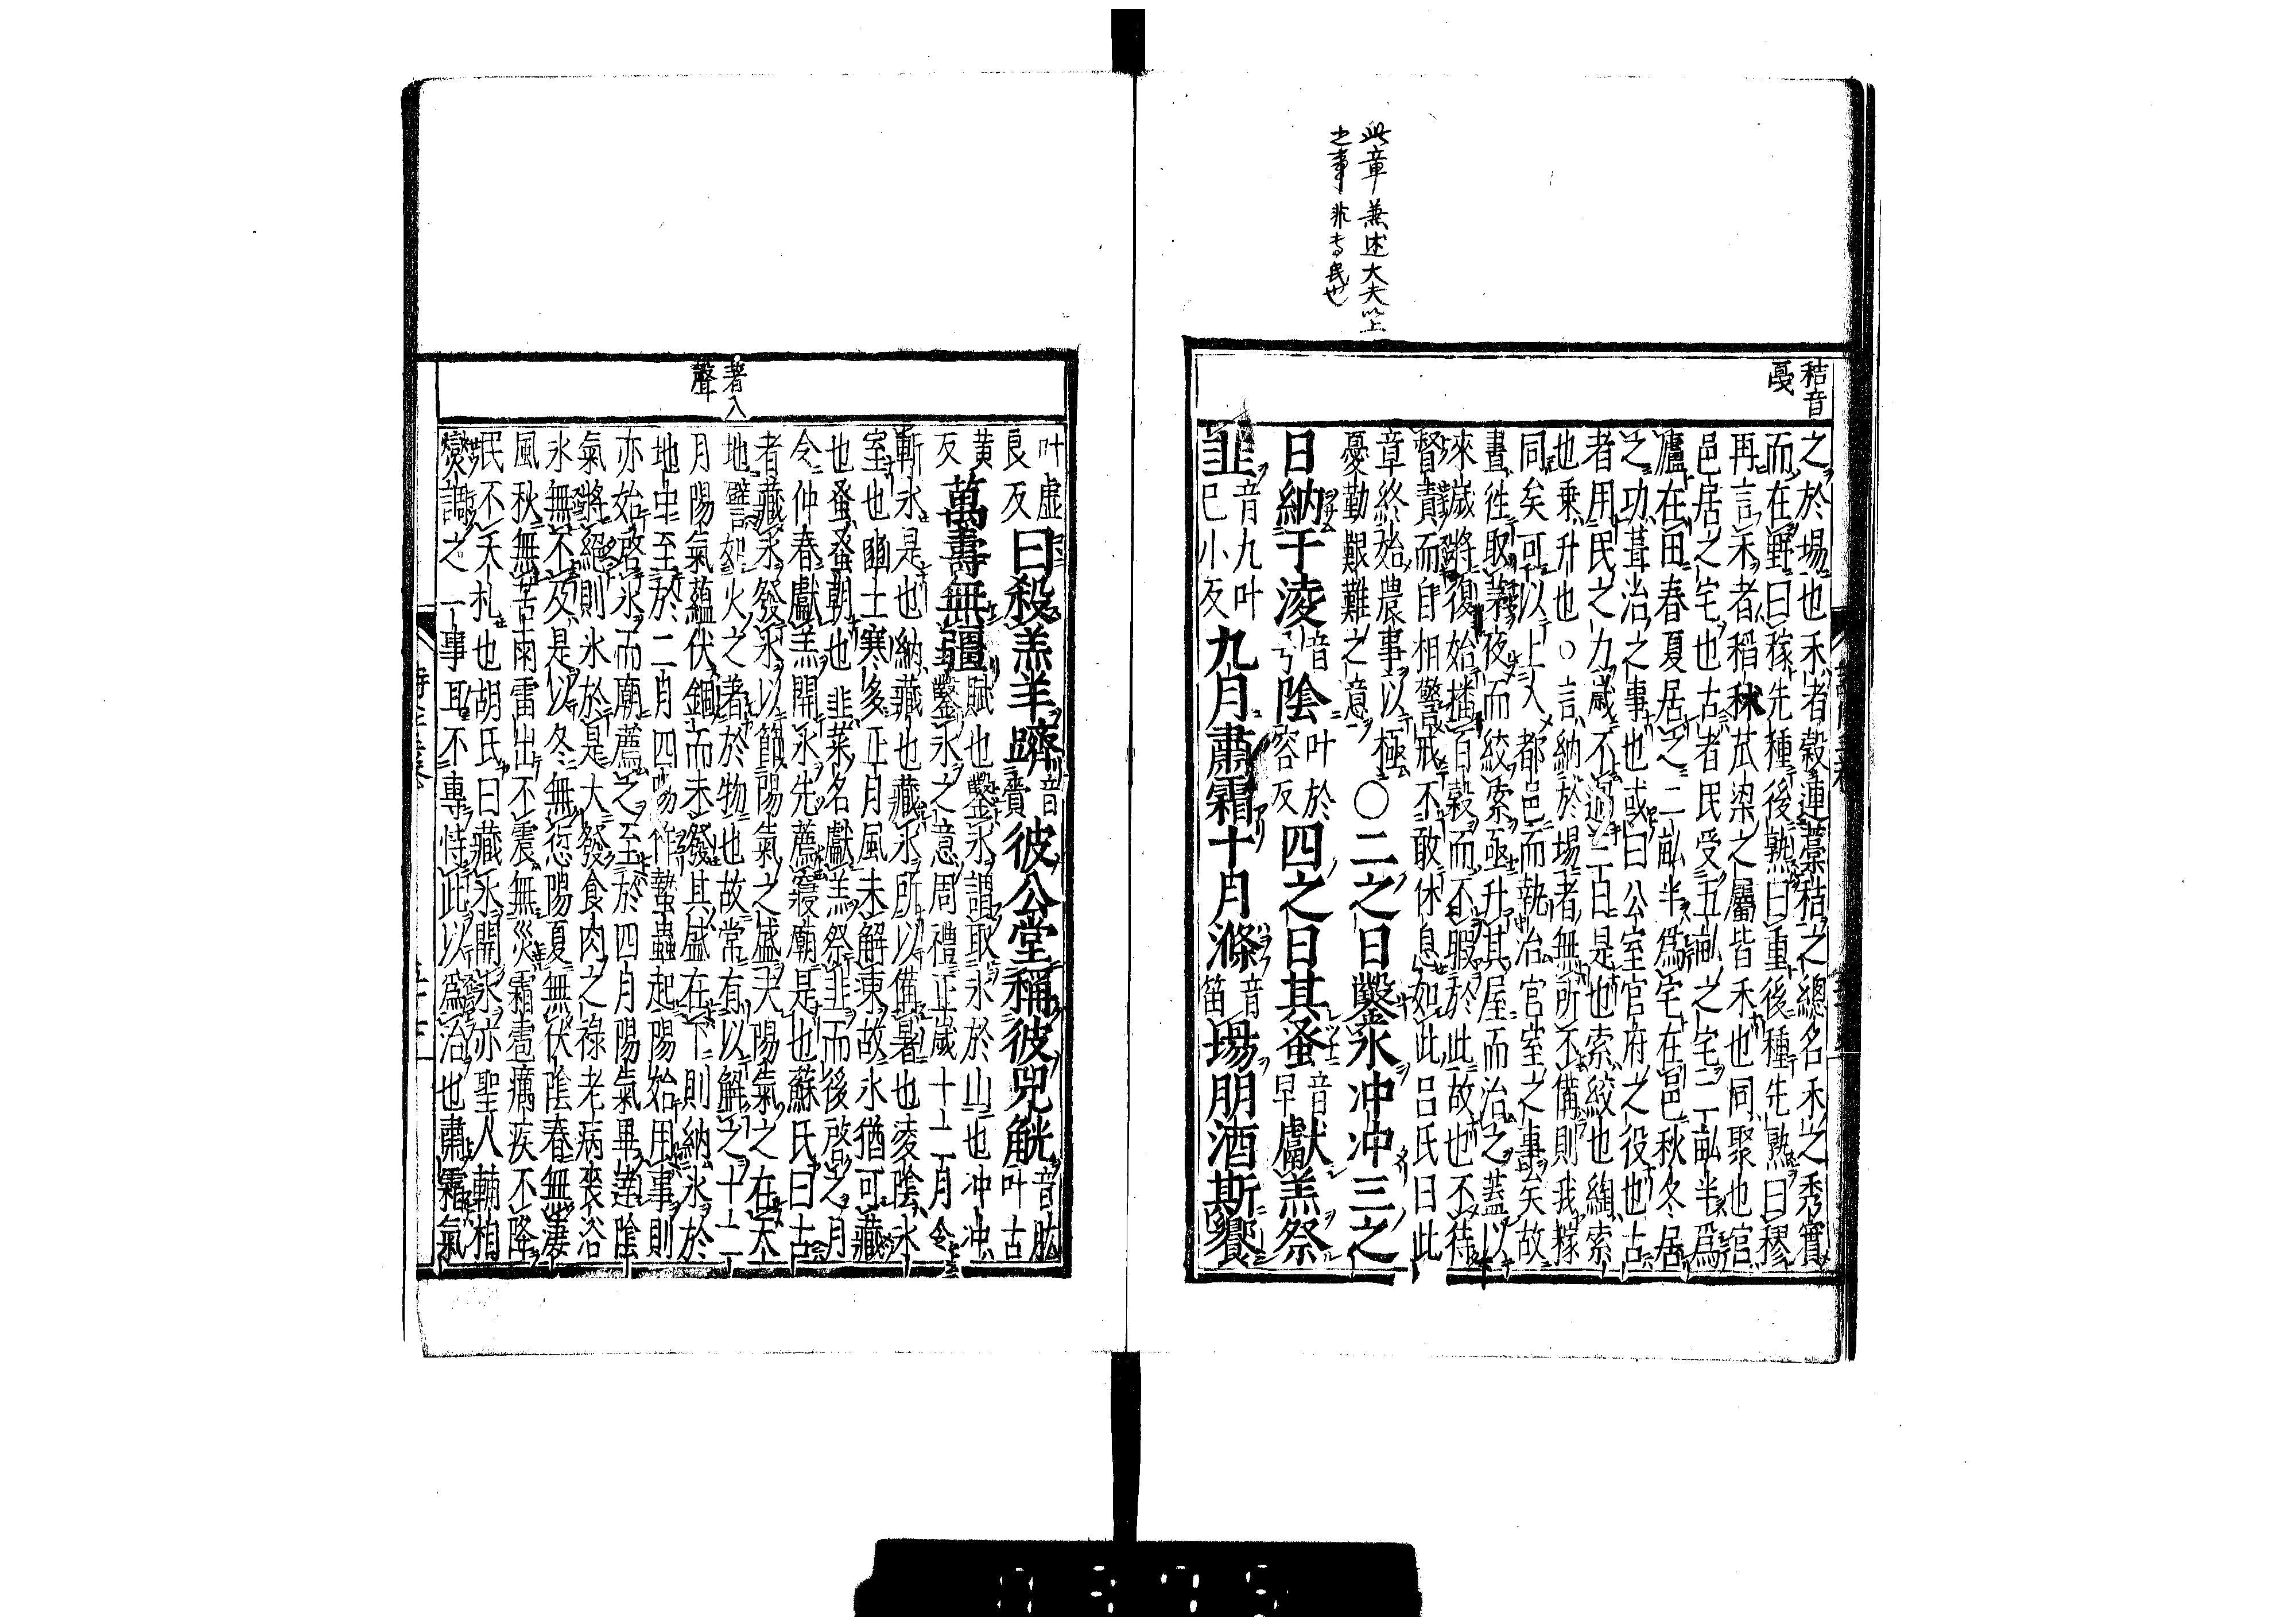 此章兼述大夫以上
之事非専民也
秸音
戞
之於場也禾者穀連藁秸之總名禾之秀實
而在野曰稼先種後熟曰重後種先熟曰穋
再言禾者稻秫苽梁之屬皆禾也同聚也宮
邑居之宅也古者民受五畝之宅二畝半爲
廬在田春夏居之二畝半爲宅在邑秋冬居
之功葺治之事也或曰公室官府之役也古
者用民之力歲不過三日是也索絞也綯索
也乗升也○言納於場者無所不備則我稼
同矣可以上入都邑而執治宮室之事矣故
晝往取茅夜而絞索亟升其屋而治之蓋以
來歲將復始播百穀而不暇於此故也不待
督責而自相警戒不敢休息如此呂氏曰此
章終始農事以極
憂勤艱難之意
○二之日鑿冰冲冲三之
日納于淩音陰叶於容反四之日其蚤音早獻羔祭
韭音九叶巳小反九月肅霜十月滌音笛場朋酒斯饗
叶虚良反曰殺羔羊躋音賷彼公堂稱彼兕觥音肱叶古
黄反萬壽無疆賦也鑿氷謂取氷於山也冲冲
鑿氷之意周禮正歲十二月令
斬氷是也納藏也藏氷所以備暑也凌陰氷
室也豳土寒多正月風未解凍故氷猶可藏
也蚤蚤朝也韭菜名獻羔祭韭而後啓之月
令仲春獻羔開氷先薦寢廟是也蘇氏曰古
者藏氷發氷以節陽氣之盛夫陽氣之在天
地譬如火之著於物也故常有以解之十二
月陽氣蘊伏錮而未發其盛在下則納氷於
地中至於二月四陽作蟄蟲起陽始用事則
亦始啓氷而廟薦之至於四月陽氣畢達陰
氣將絕則氷於是大發食肉之祿老病喪浴
氷無不及是以冬無愆陽夏無伏陰春無凄
風秋無苦雨雷出不震無災霜雹癘疾不降
民不夭札也胡氏曰藏氷開氷亦聖人輔相
燮調之一事耳不專恃此以爲治也肅霜氣
著入
聲